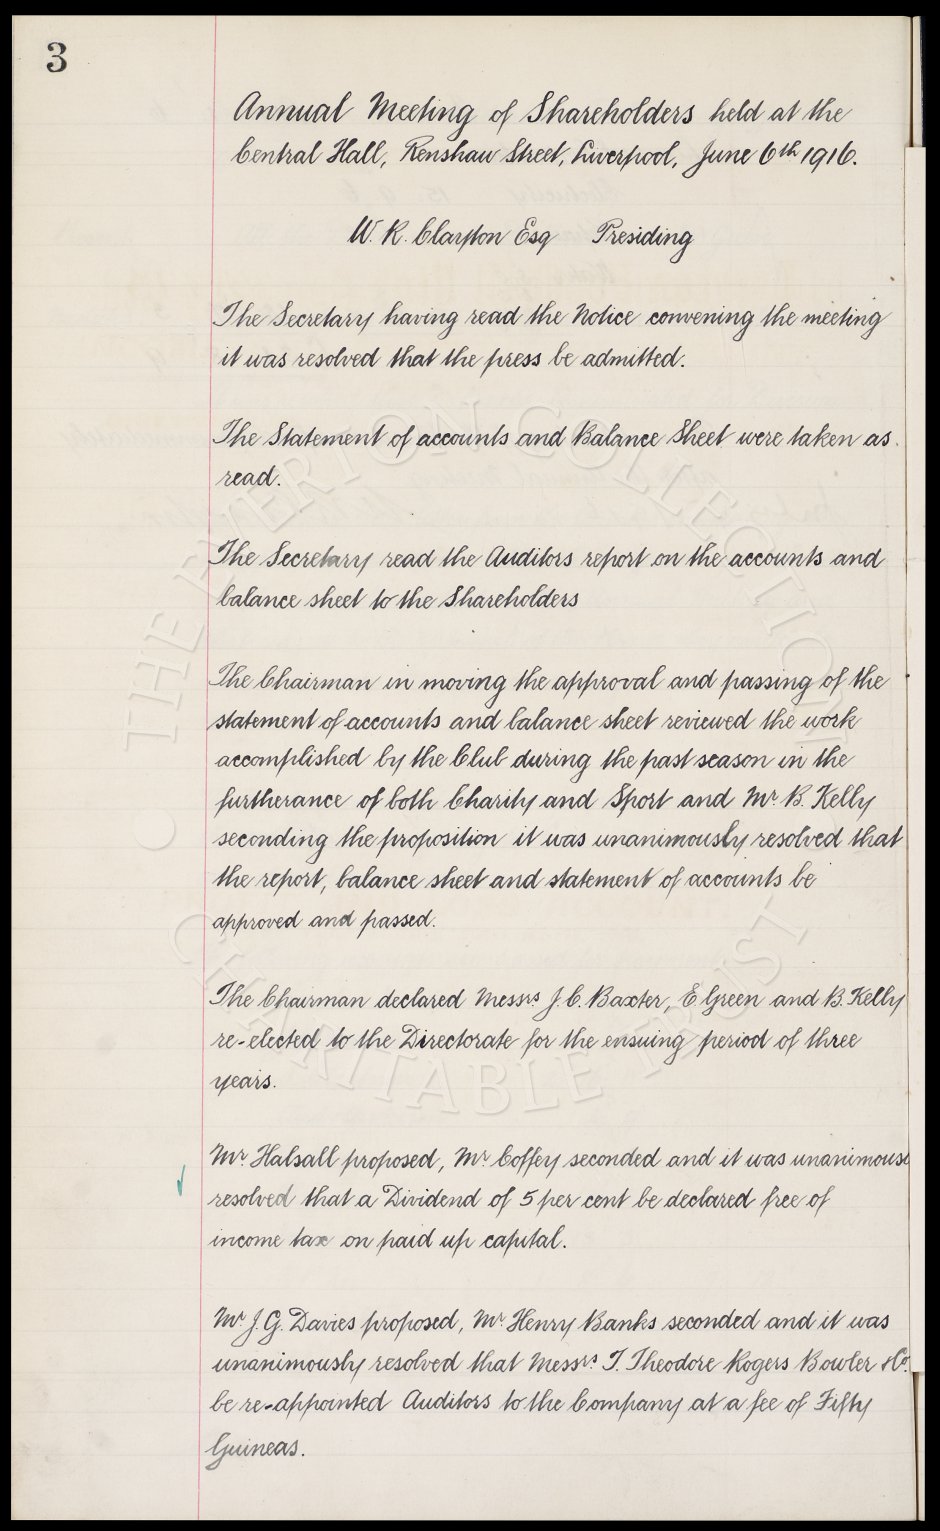 3
Annual Meeting of Shareholders held at the
Central Hall, Renshaw Street, Liverpool, June 6th 1916.
W. R. Clayton Esq Presiding
The Secretary having read the Notice convening the meeting
it was resolved that the press be admitted.
The Statement of accounts and Balance Sheet were taken as
read.
The Secretary read the Auditors report on the accounts and
balance sheet to the Shareholders
The Chairman in moving the approval and passing of the
statement of accounts and balance sheet reviewed the work
accomplished by the Club during the past season in the
furtherance of both Charity and Sport and Mr. B. Kelly
seconding the proposition it was unanimously resolved that
the report, balance sheet and statement of accounts be
approved and passed.
The Chairman declared Messrs J. C. Baxter, E Green and B. Kelly
re-elected to the Directorate for the ensuing period of three
years.
Mr. Halsall proposed, Mr. Coffey seconded and it was unanimousl
resolved that a Dividend of 5 per cent be declared free of
income tax on paid up capital.
Mr. J. G. Davies proposed, Mr. Henry Banks seconded and it was
unanimously resolved that Messrs. T. Theodore Rogers Bowler & Co.
be re-appointed Auditors to the Company at a fee of Fifty
Guineas.
THE EVERTON COLLECTION
CHARITABLE TRUST